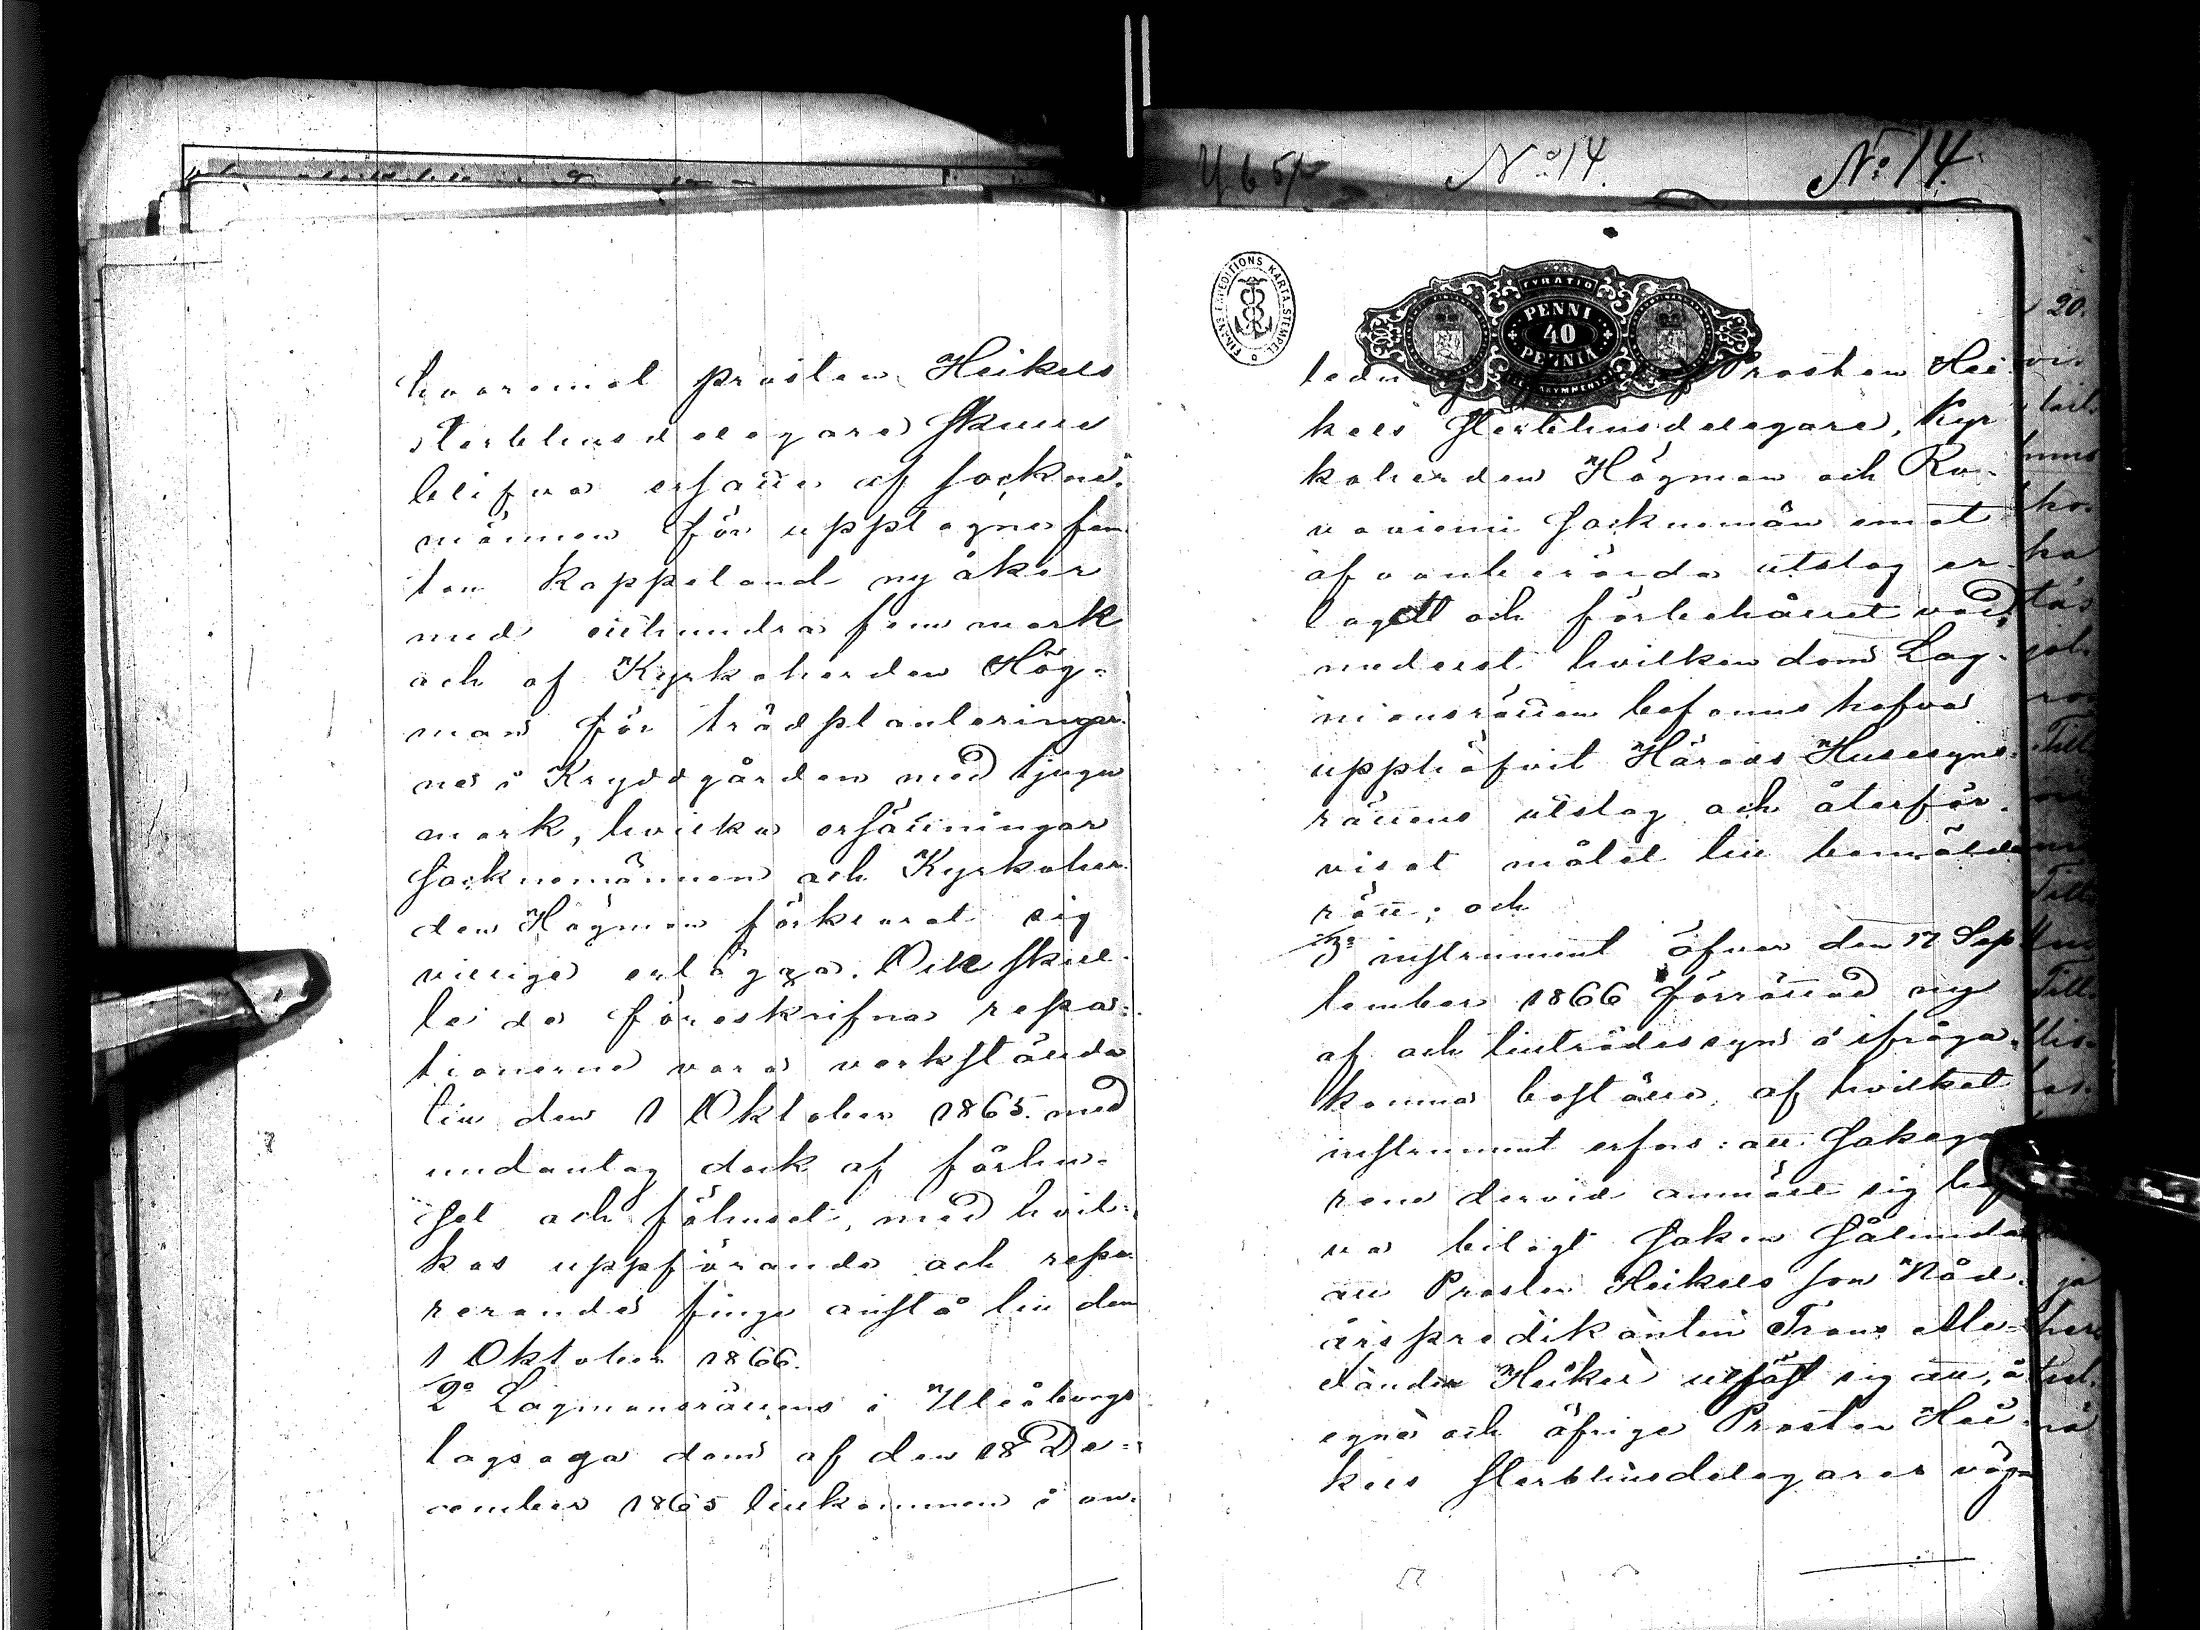 hvaremot prosten Heikels
sterbhusdelegare skulle
blifva ersatte af sockne-
männen för upptagne fem
ton kappeland ny åker
med etthundra fem mark
och af Kyrkoherden Hög-
man för trädplanteringar-
ne i Krydgården med tjugu
mark, hvilka ersättningar
socknemännen och Kyrkoher-
den Högman förklarat sig
villige erlägga. Ock skul-
le de föreskrifna repa-
tionerne vara verkstälda
till den 1 Oktober 1865. med
undantag dock af förhu-
set och fähuset, med hvil-
kas uppförande och repa-
rerande finge anstå till den
1 Oktober 1866.
2o Lagmansrättens i Uleåborgs
lagsaga dom af den 18 De-
cember 1865 tillkommen i an-
No 14. No 14.
FINANS EXPEDITIONS KARTA STEMPEL
PENNI
40
PENNIÄ
Prosten Hei-
kels Sterbhusdelegare, Kyr
koherden Högman och Ro-
vaniemi Socknemän emot
ofvanberörda utslag er-
lagdt och förbehållet vad,
medelst hvilken dom Lag-
mansrätten befunnits hafva
upphäfvit Härads Husesyns-
rättens utslag och återför-
visat målet till bemälde
rätt; och
3o instrument öfver den 17 Sep
tember 1866 förrättad ny
af och tillträdessyn å ifråga-
komna boställe, af hvilket
instrument erfars: att Sakega
rene dervid anmält sig haf
va bilagt saken sålunda
att Prosten Heikels son Nåd-
årspredikanten Frans Ale-
xander Heikel utfäst sig att, å
egna och öfrige Prosten Hei-
kels Sterbhusdelegares vägn